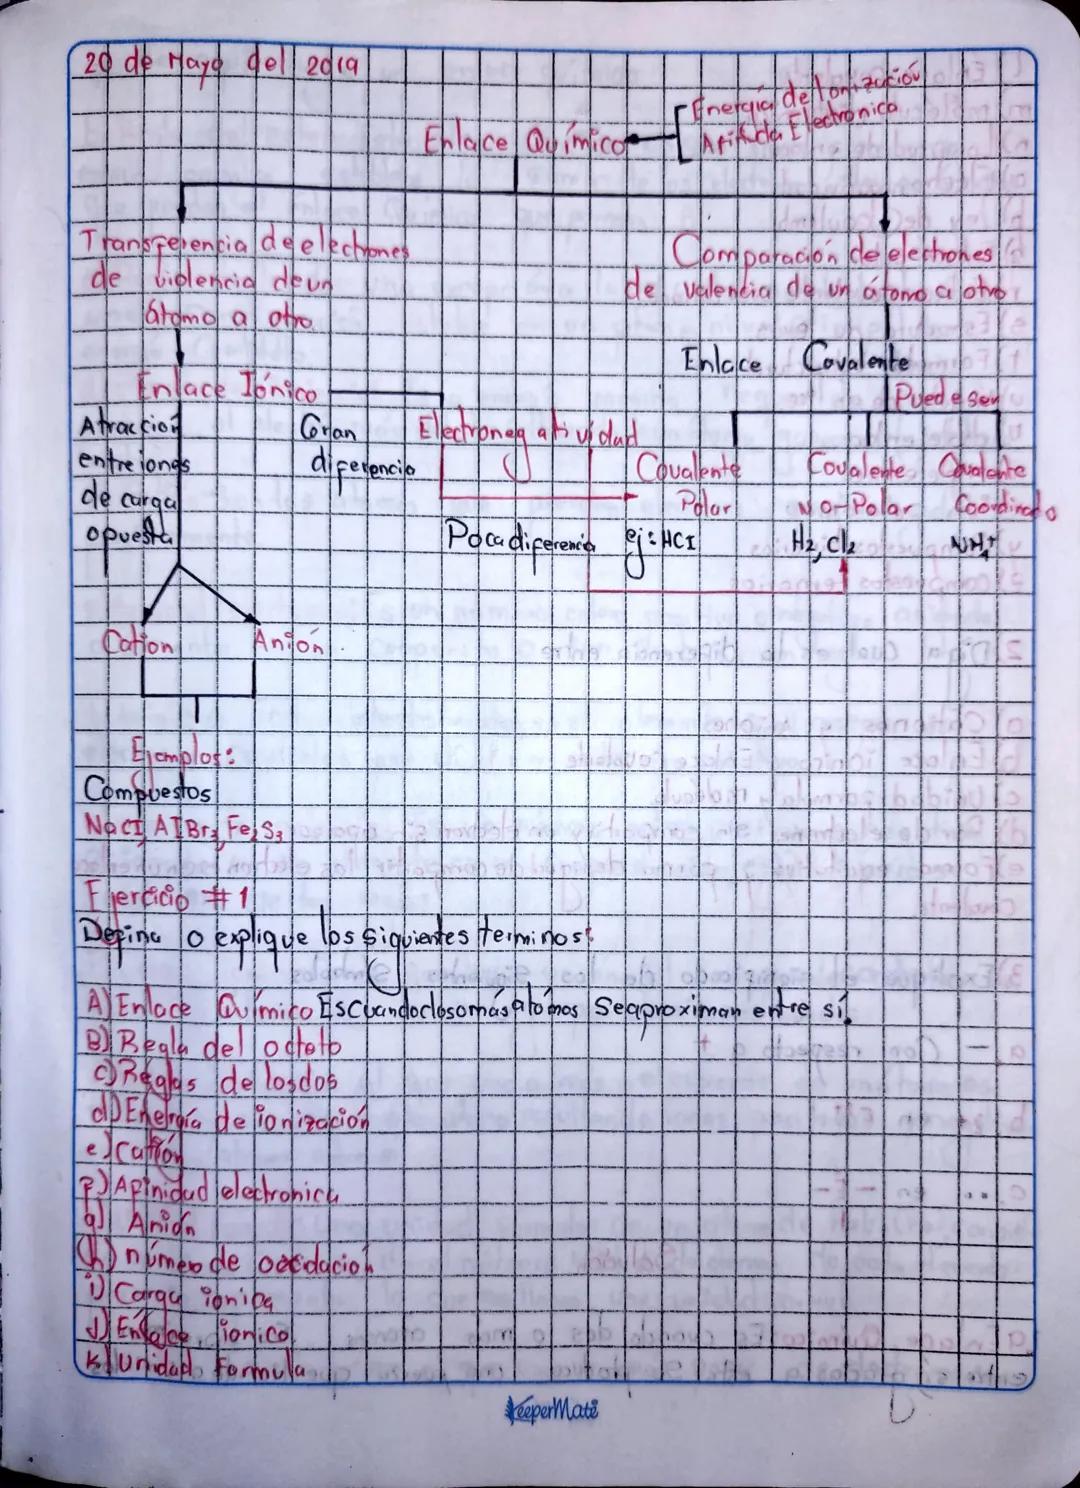 20 de Mayo del 2019
Energía de Ionización
Enlace Químico
Afinida Electronica
Transferencia de electrones
de violencia de un
átomo a otro
Comparación de electrones
de valencia de un átomo a otro
Enlace Covalente
Puede ser
Enlace Iónico
Atraccion
entre iones
de carga
opuesta
Gran
diferencia
Electronegatividad
Poca diferencia
Covalente
Polar
ej: HCl
Covalente
No Polar
H2, Cl2
Covalente
Coordinado
NH4+
Cation
Anión
Ejemplos:
Compuestos
NaCl, AlBr3, Fe2S3
Ejercicio #1
Defina o explique los siguientes terminos:
A) Enlace Químico Es cuando dos o más atómos se aproximan entre sí.
B) Regla del octeto
c) Reglas de los dos
d) Energía de ionización
e) Catión
f) Afinidad electronica
g) Anión
h) número de oxidación
i) Carga ionica
J) Enlace ionico
k) Unidad Formula
KeeperMate